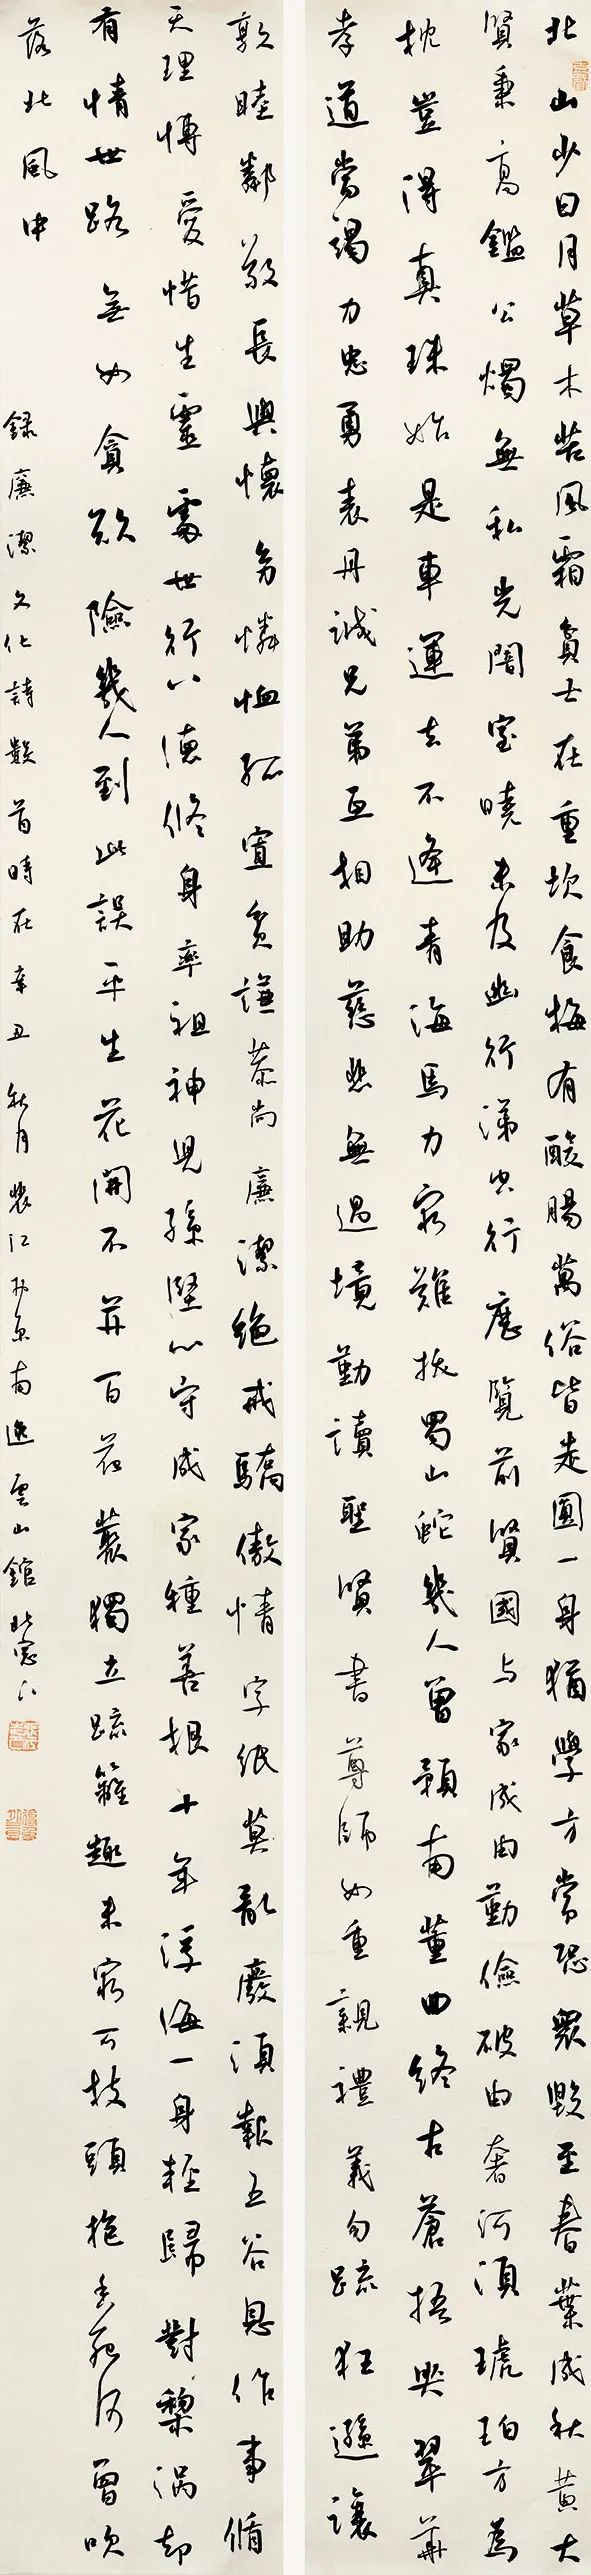 北山少日月草木苦風霜貧士在重坎食梅有酸腸萬俗皆走圓一身猶學方常恐衆毀至春葉成秋黃大
賢秉高鑑公燭無私光闇室曉未及幽行涕空行歷覽前賢國与家成由勤儉破由奢何須琥珀方為
枕豈得真珠始是車運去不逢青海馬力窮難拔蜀山蛇幾人曾預南薰曲終古蒼梧哭翠華
孝道當竭力忠勇表丹誠兄弟互相助慈悲無過境勤讀聖賢書尊師如重親禮義勿疏狂遜讓
敦睦鄰敬長與懷幼憐恤孤寡貧謙恭尚廉潔絕戒驕傲情字紙莫亂廢須報五谷恩作事循
天理博愛惜生靈處世行八德修身率祖神兒孫堅心守成家種善根十年浮海一身輕歸對黎渦却
有情世路無如貪欲險幾人到此誤平生花開不并百花叢獨立疏籬趣未窮可枝頭抱香死何曾吹
落北風中
錄廉潔文化詩數首時在辛丑秋月江南逸雲山館北窗下